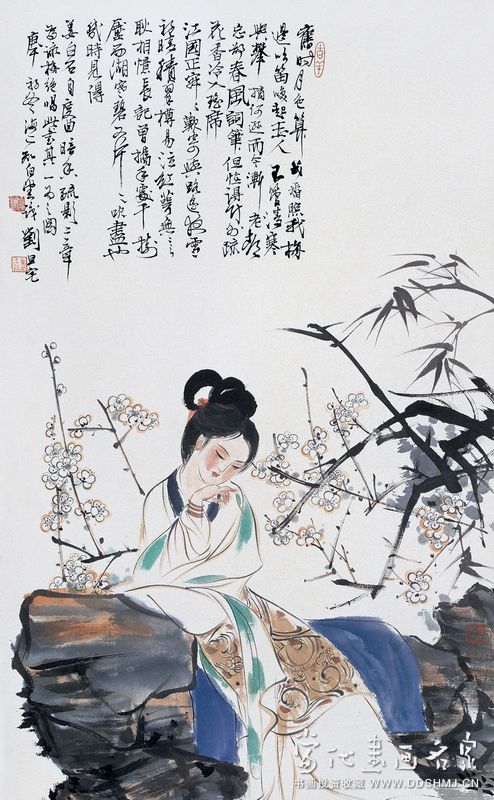 舊時月色算幾番照我梅
邊吹笛喚起玉人不管清寒
與攀摘何遜而今漸老都
忘卻春風詞筆但怪得竹外疏
花香冷入瑤席
江國正寂寂嘆寄與路遙夜雪
初積翠尊易泣紅萼無言
耿相憶長記曾攜手處千樹
壓西湖寒碧又片片吹盡也
幾時見得
姜白石自度曲暗香疏影二章
為詠梅絕唱此其一為之圖
劉旦宅
当代書画名家
书画投资收藏 WWW.DDSHMJ.CN